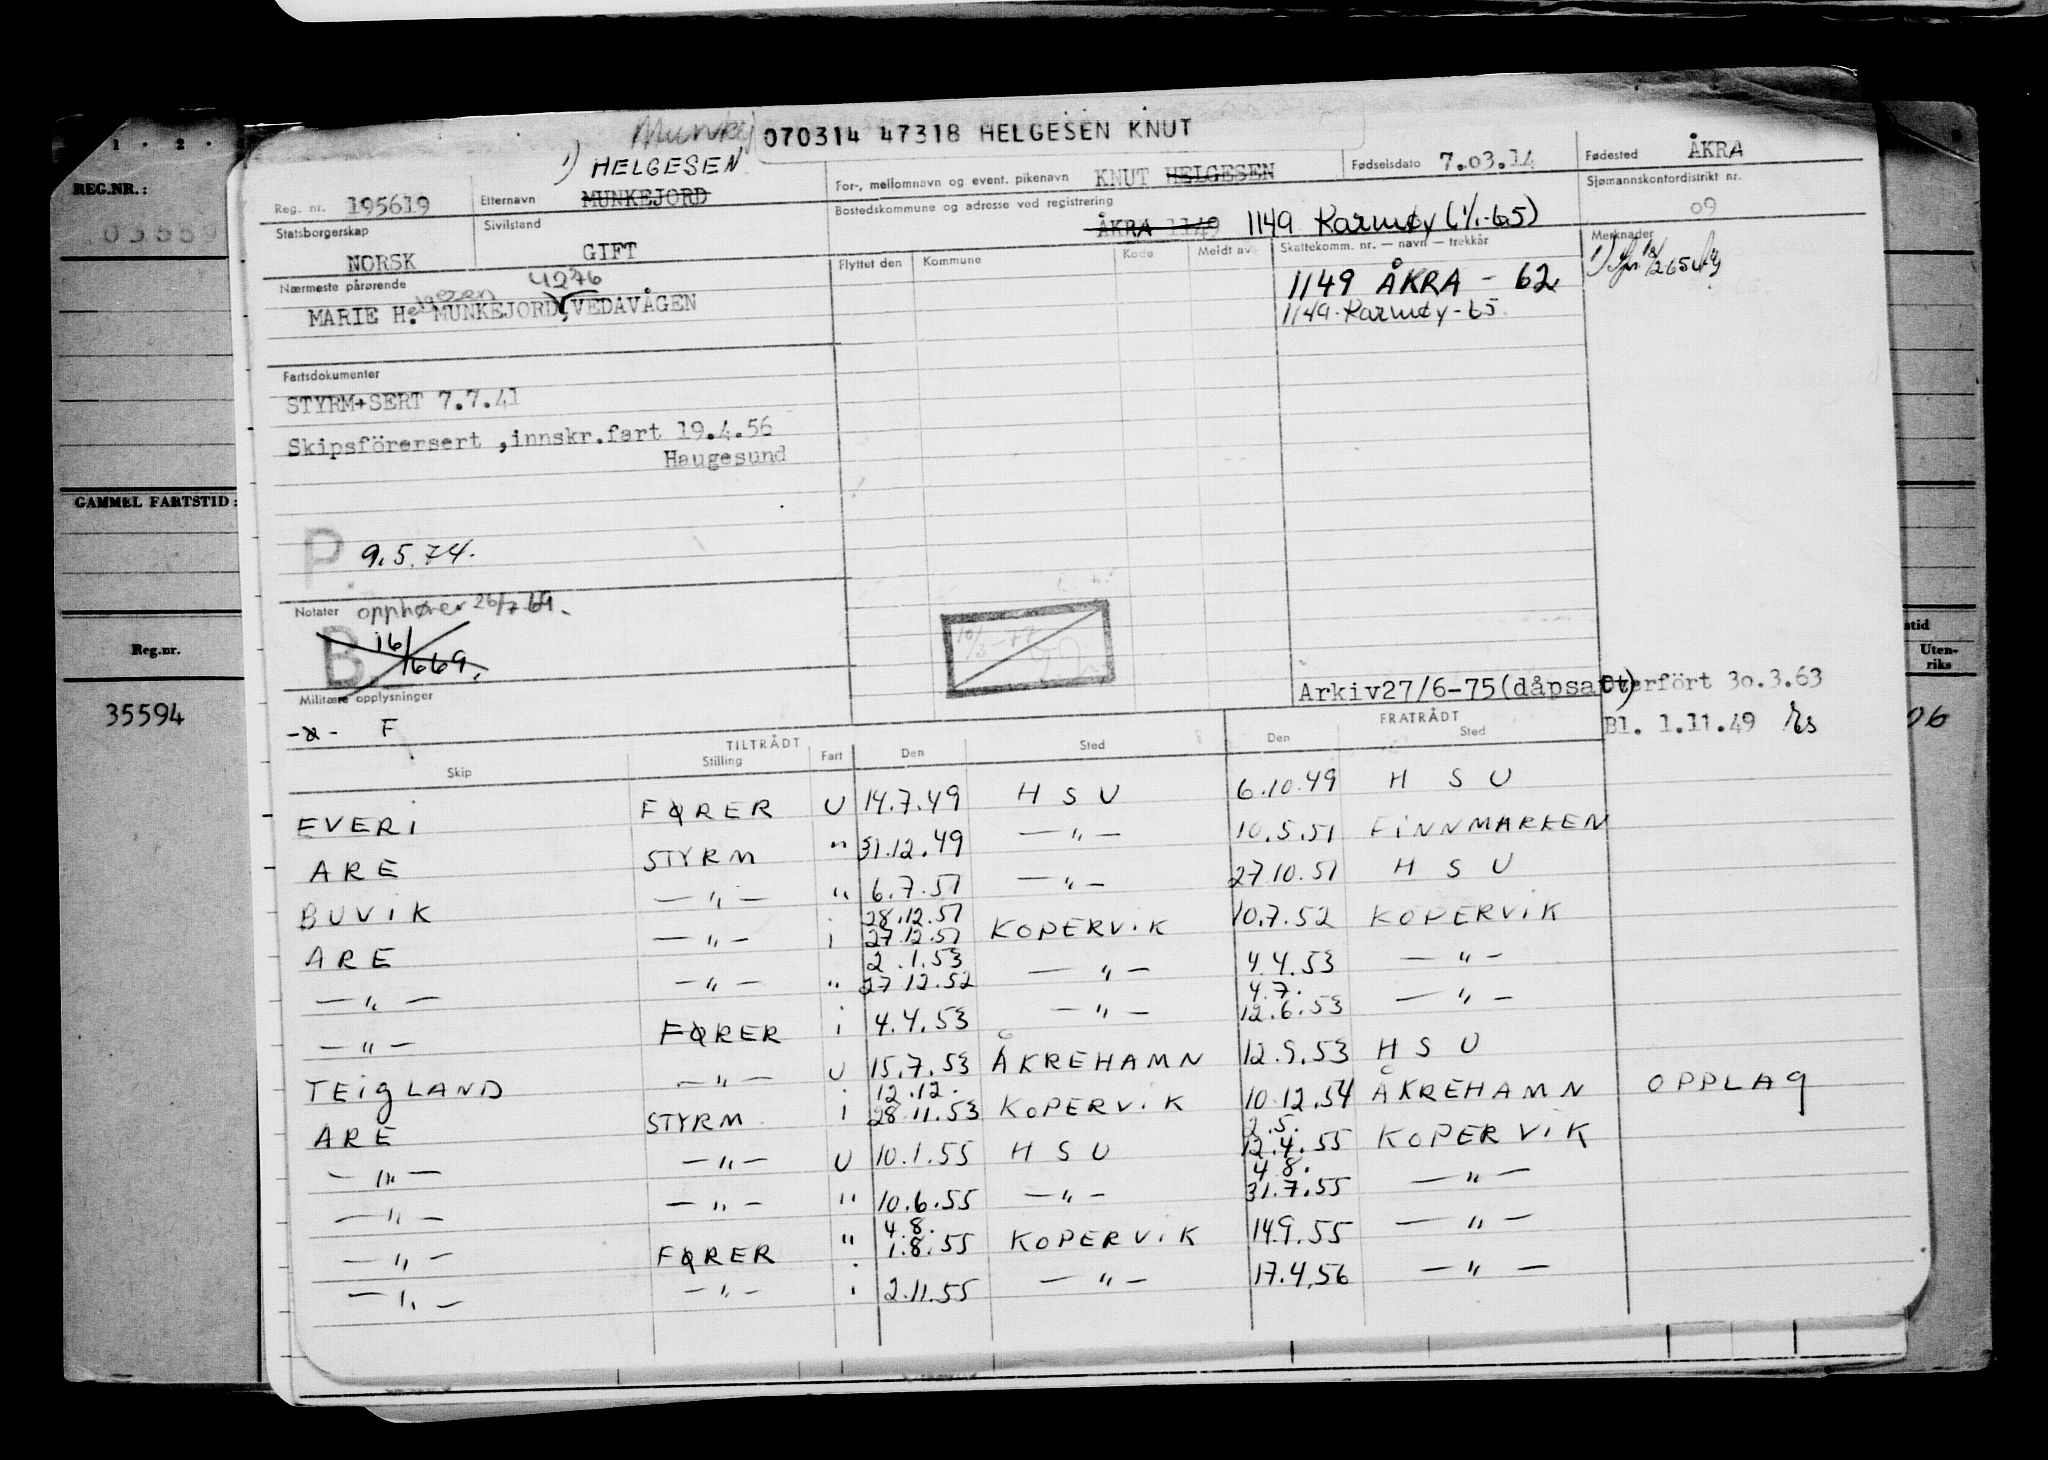 1 . 2 .
REG.NR.:
GAMMEL FARTSTID:
Reg.nr.
35594
Uten-
riks
06
070314 47318 HELGESEN KNUT
1) HELGESEN
Reg. nr. 195619 Etternavn MUNKEJORD For-, mellomnavn og event. pikenavn KNUT HELGESEN Fødselsdato 7.03.14 Fødested ÅKRA
Statsborgerskap NORSK Sivilstand GIFT Bostedskommune og adresse ved registrering ÅKRA 1149 1149 Karmøy (1/1-65) Sjømannskontordistrikt nr. 09
Flyttet den Kommune Kode Meldt av Skattekomm. nr. — navn — trekkår Merknader
1149 ÅKRA - 62
1149 Karmøy - 65
Nærmeste pårørende 4276
MARIE Helgesen MUNKEJORD, VEDAVÅGEN
Fartsdokumenter
STYRM+SERT 7.7.41
Skipsförersert ,innskr.fart 19.4.56
Haugesund
P 9.5.74.
Notater opphører 26/7 69.
B 16/669.
Militære opplysninger
F
Arkiv27/6-75(dåpsatt) Overfört 30.3.63
Bl. 1.11.49
TILTRÅDT FRATRÅDT
Skip Stilling Fart Den Sted Den Sted
EVERI FØRER U 14.7.49 H S U 6.10.49 H S U
ARE STYRM " 31.12.49 — " — 10.5.51 FINNMARKEN
BUVIK — " — " 6.7.51 — " — 27 10.51 H S U
28.12.51
ARE — " — i 27.12.51 KOPERVIK 10.7.52 KOPERVIK
2.1.53
— " — — " — " 27 12.52 — " — 4.4.53 — " —
4.7.
— " — FØRER i 4.4.53 — " — 12.6.53 — " —
TEIGLAND — " — U 15.7.53 ÅKREHAMN 12.9.53 H S U
12.12.
ARE STYRM i 28.11.53 KOPERVIK 10.12.54 ÅKREHAMN OPPLAG
2.5.
— " — — " — U 10.1.55 H S U 12.4.55 KOPERVIK
4.8.
— " — — " — " 10.6.55 — " — 31.7.55 — " —
4.8.
— " — FØRER " 1.8.55 KOPERVIK 14.9.55 — " —
— " — — " — i 2.11.55 — " — 17.4.56 — " —